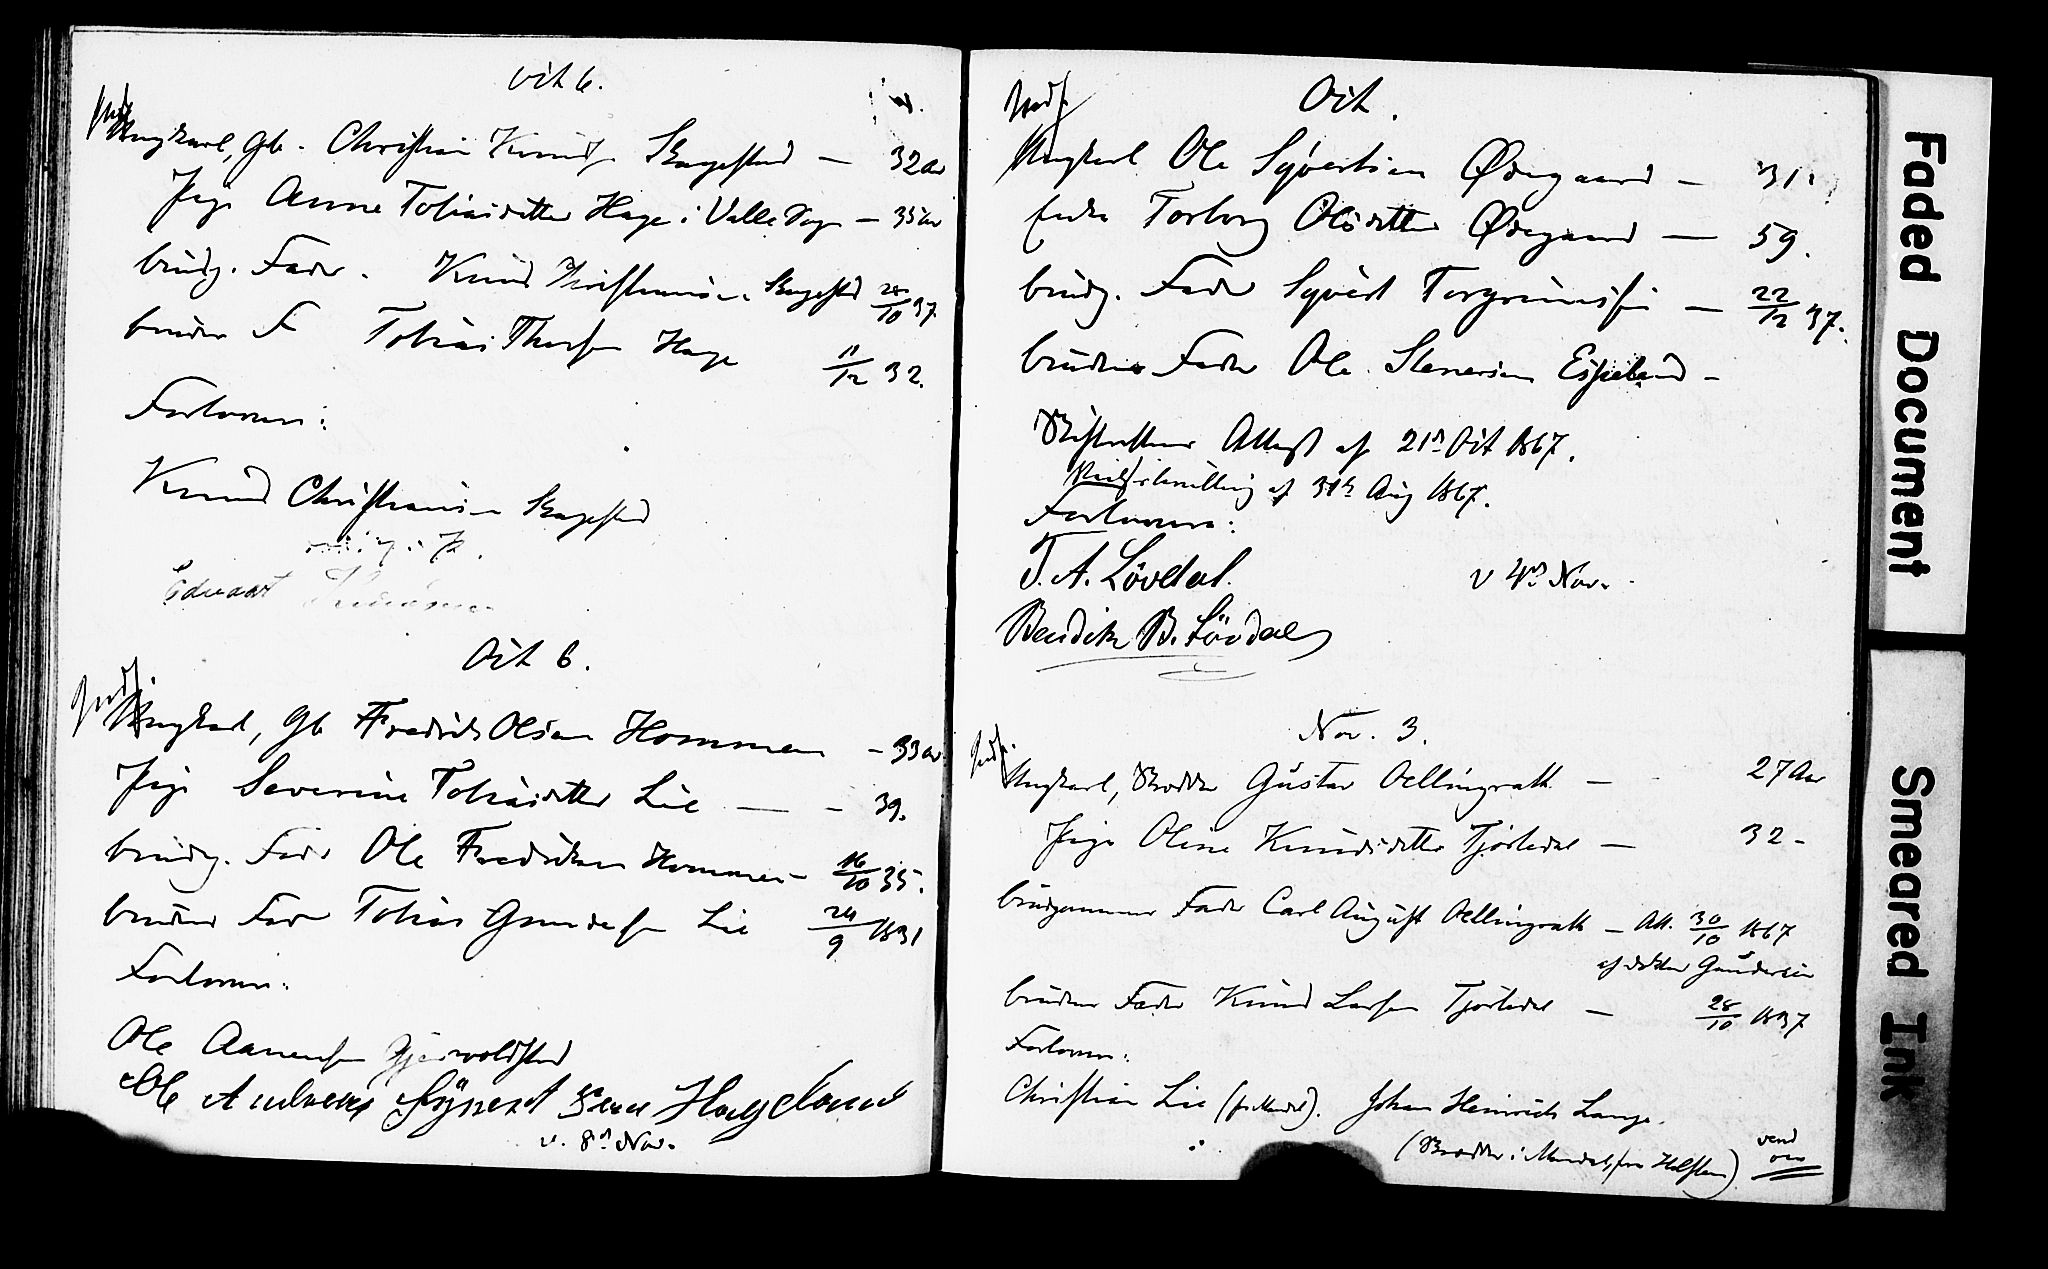 Oct 6.
Ungkarl, Gb. Christian Knuds. Skagestad — 32 aar
Pige Anne Tobiasdatter Hage i Valle Sogn — 35 aar
brudg. Fader. Knud Christiansen Skagestad 28/10 37.
brudens F Tobias Thorsen Hage 11/12 32.
Forlovere:
Knud Christiansen Skagestad
m. i. P.
Edwart
Oct 6.
Indf.
Ungkarl, Gb Fredrik Olsen Hommen — 33 aar
Pige Severine Tobiasdatter Lie — - 39.
brudg. Fader Ole Fredriksen Hommen — 16/10 35.
brudens Fader Tobias Gundersen Lie 24/9 1831
Forlovere:
Ole Aanensen Gjervoldstad
Ole Andreas Syvert Hageland
v. 8de Nov.
Indf.
Oct.
Ungkarl Ole Syvertsen Ødegaard — 31
Enke Torborg Olsdatter Ødegaard — 59.
brudg. Fader Syvert Torgrimsen — 22/12 37.
brudens Fader Ole Stenersen Espeland —
Skifterettens Attest af 21de Oct 1867.
bevilling af 31te Aug 1867.
Forlovere:
T. A. Lövdal.
v 4de Nov.
Bendik B. Lövdal
Nov. 3.
Indf.
Ungkarl, Snedker Gustav Oellingrath — 27 Aar
Pige Oline Knudsdatter Tjørledal — 32 -
brudgommens Fader Carl August Oellingrath — Att. 30/10 1867
af doktor Gundersen
brudens Fader Knud Larsen Tjørledal — 28/10 1837
Forlovere:
Christian Lie (fr Mandal). Johan Heinrich Lange.
(Snedker i Mandal, fra Holsten)
vend om
Faded Document
Smeared Ink